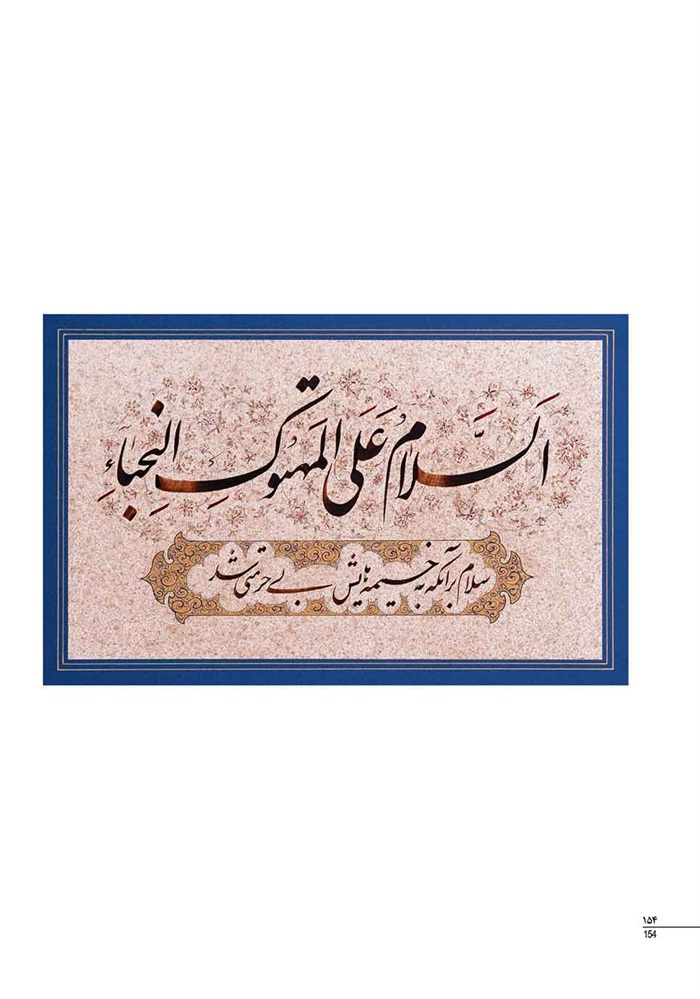 اَلسَّلامُ عَلَی المَهْتوکِ الخِباءِ
سلام بر آنکه به خیمه هایش بی حرمتی شد
۱۵۴
154